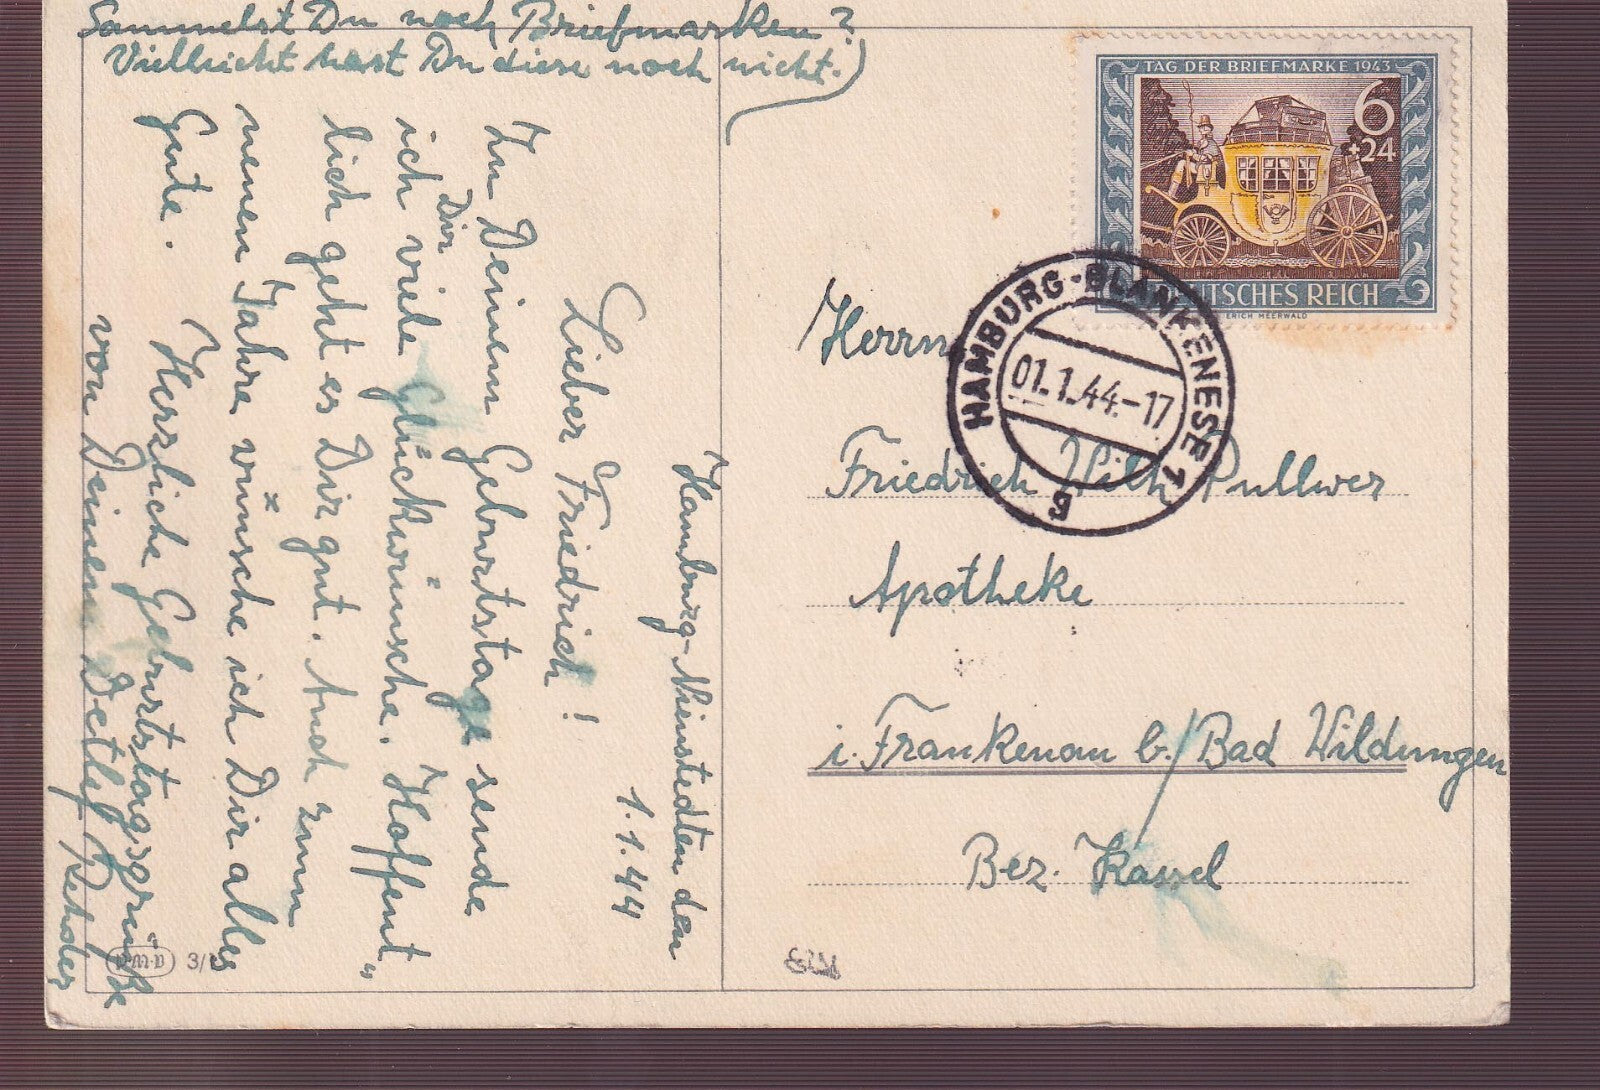 Sammelst Du noch Briefmarken?
Vielleicht hast Du diese noch nicht.)
Hamburg-Nienstedten den
1.1.44
Lieber Friedrich!
Zu Deinem Geburtstage sende
ich Dir viele Glückwünsche. Hoffent„
lich geht es Dir gut. Auch zum
neuen Jahre wünsche ich Dir alles
Gute.
Herzliche Geburtstagsgrüße
von Deinem Detlef Rehder
3/
TAG DER BRIEFMARKE 1943
6
+24
DEUTSCHES REICH
ERICH MEERWALD
HAMBURG-BLANKENESE 1
01.1.44.-17
g
Herrn
Friedrich Wilh. Pullwer
Apotheke
i. Frankenau b./Bad Wildungen
Bez. Kassel